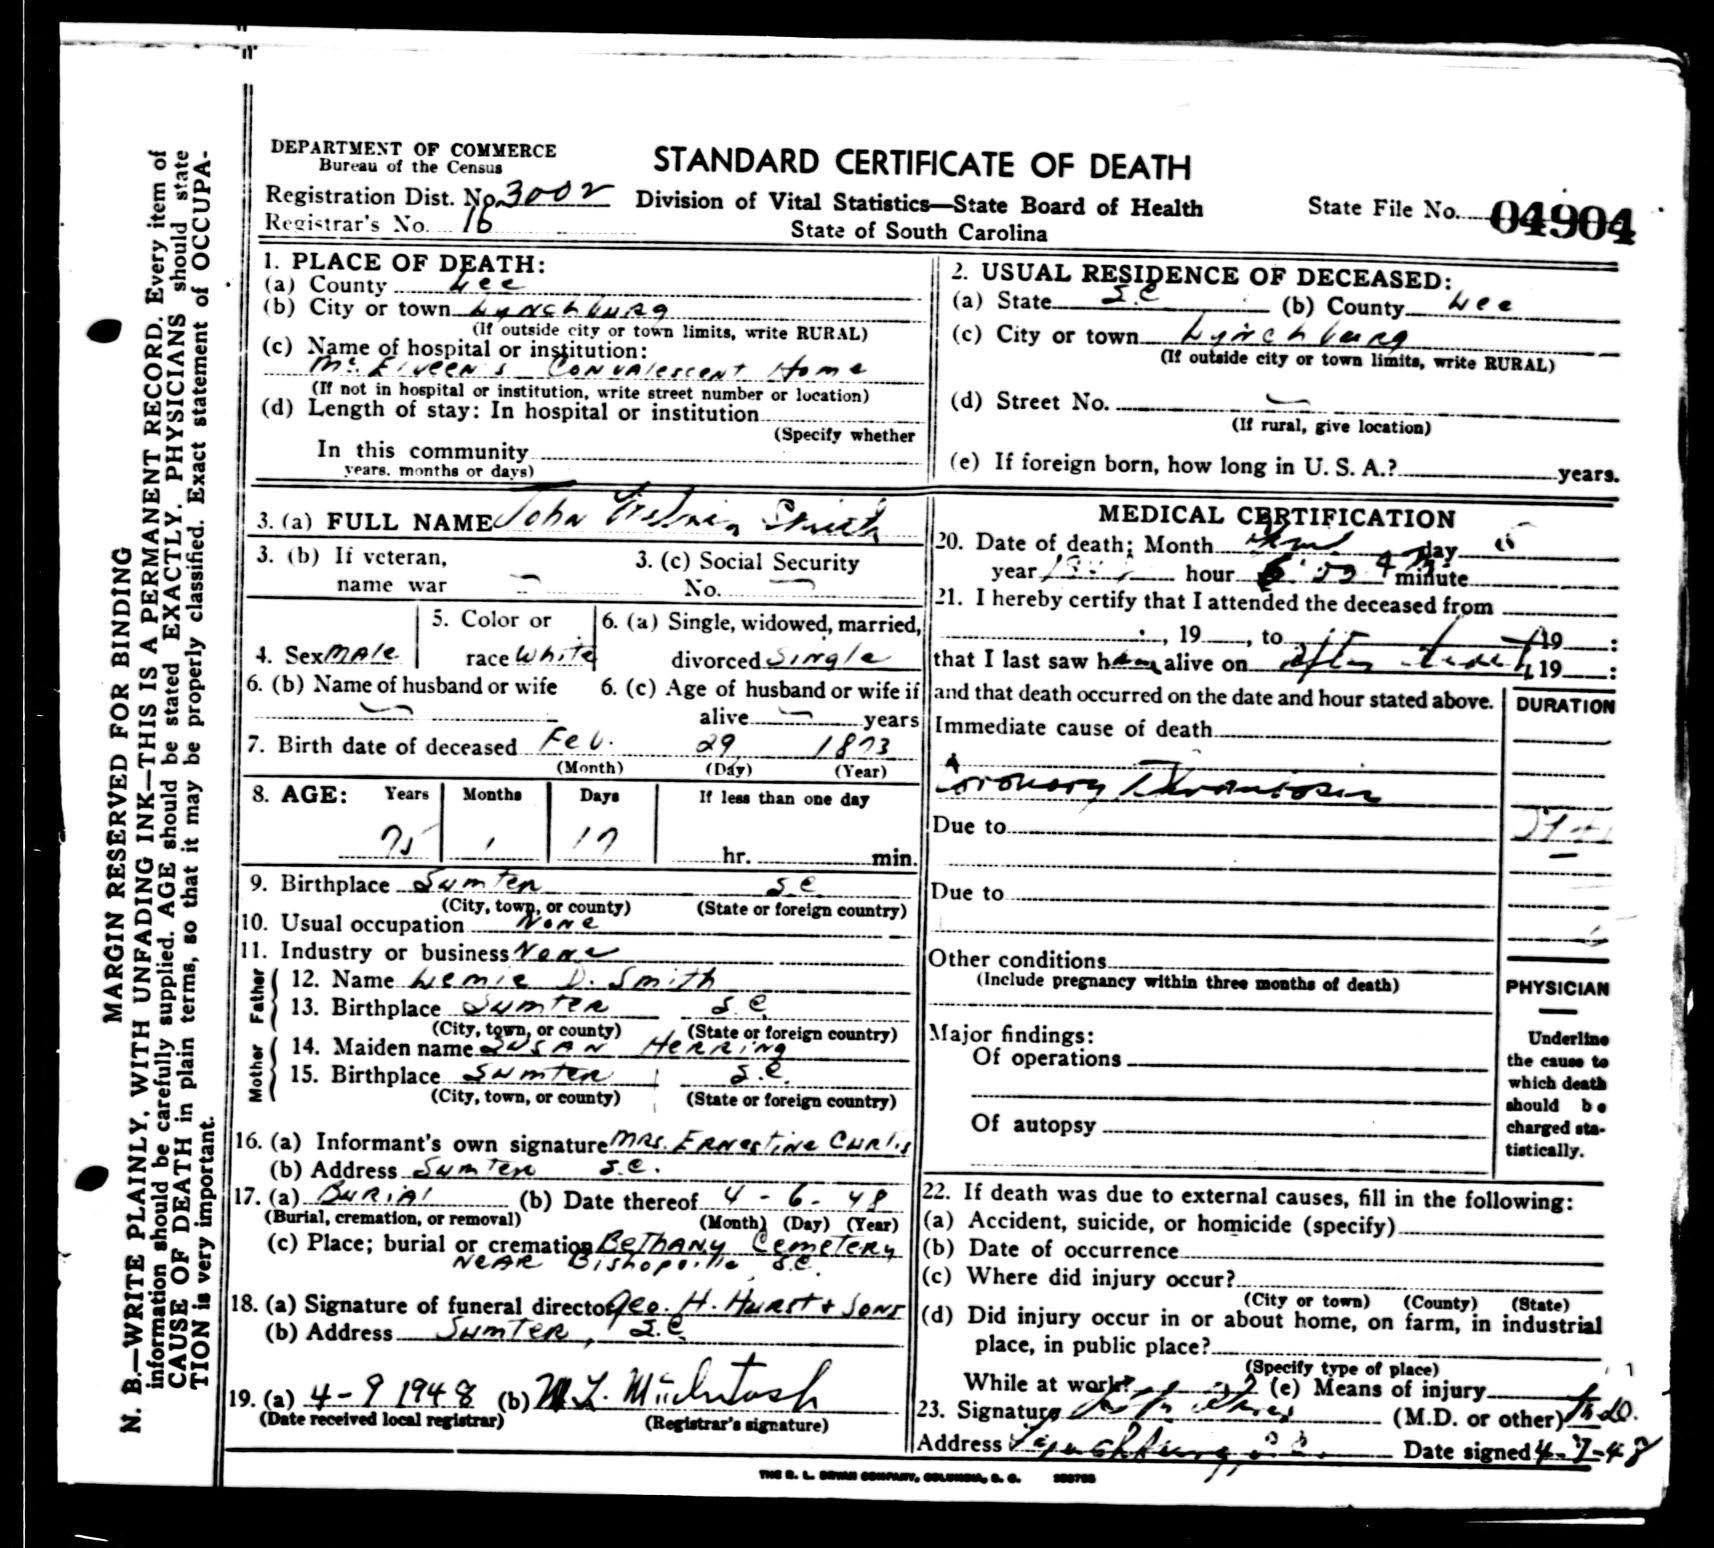 DEPARTMENT OF COMMERCE
Bureau of the Census
STANDARD CERTIFICATE OF DEATH
Registration Dist. No. 3002
Division of Vital Statistics—State Board of Health
State File No. 04904
Registrar's No. 16
State of South Carolina
1. PLACE OF DEATH:
(a) County Lee
(b) City or town Lynchburg
(If outside city or town limits, write RURAL)
(c) Name of hospital or institution:
Convalescent Home
(If not in hospital or institution, write street number or location)
(d) Length of stay: In hospital or institution
(Specify whether
In this community
years, months or days)
2. USUAL RESIDENCE OF DECEASED:
(a) State S.C (b) County Lee
(c) City or town Lynchburg
(If outside city or town limits, write RURAL)
(d) Street No. —
(If rural, give location)
(e) If foreign born, how long in U. S. A.? years.
3. (a) FULL NAME John Smith
3. (b) If veteran,
name war —
3. (c) Social Security
No. —
4. Sex male
5. Color or
race White
6. (a) Single, widowed, married,
divorced Single
6. (b) Name of husband or wife
—
6. (c) Age of husband or wife if
alive — years
7. Birth date of deceased Feb. 29 1873
(Month) (Day) (Year)
8. AGE: Years Months Days If less than one day
75 1 17 hr. min.
9. Birthplace Sumter S.C
(City, town, or county) (State or foreign country)
10. Usual occupation None
11. Industry or business None
Father
12. Name D. Smith
13. Birthplace Sumter S.C.
(City, town, or county) (State or foreign country)
Mother
14. Maiden name Susan Herring
15. Birthplace Sumter S.C.
(City, town, or county) (State or foreign country)
16. (a) Informant's own signature Mrs. Ernestine Curtis
(b) Address Sumter S.C.
17. (a) Burial (b) Date thereof 4 - 6 - 48
(Burial, cremation, or removal) (Month) (Day) (Year)
(c) Place; burial or cremation Bethany Cemetery
near Bishopville S.C.
18. (a) Signature of funeral director Geo. H. Hurst & Sons
(b) Address Sumter, S.C
19. (a) 4-9 1948 (b) M L McIntosh
(Date received local registrar) (Registrar's signature)
MEDICAL CERTIFICATION
20. Date of death: Month day
year hour minute
21. I hereby certify that I attended the deceased from
, 19 , to 19 :
that I last saw h alive on after death, 19 :
and that death occurred on the date and hour stated above.
DURATION
Immediate cause of death
Coronary Thrombosis
Due to
Due to
Other conditions
(Include pregnancy within three months of death)
PHYSICIAN
Underline
the cause to
which death
should be
charged sta-
tistically.
Major findings:
Of operations
Of autopsy
22. If death was due to external causes, fill in the following:
(a) Accident, suicide, or homicide (specify)
(b) Date of occurrence
(c) Where did injury occur?
(City or town) (County) (State)
(d) Did injury occur in or about home, on farm, in industrial
place, in public place?
(Specify type of place)
While at work? (e) Means of injury
23. Signature (M.D. or other) M.D.
Address Lynchburg, S.C. Date signed 4-7-48
THE R. L. BRYAN COMPANY, COLUMBIA, S. C.
MARGIN RESERVED FOR BINDING
N. B.—WRITE PLAINLY, WITH UNFADING INK—THIS IS A PERMANENT RECORD. Every item of
information should be carefully supplied. AGE should be stated EXACTLY. PHYSICIANS should state
CAUSE OF DEATH in plain terms, so that it may be properly classified. Exact statement of OCCUPA-
TION is very important.